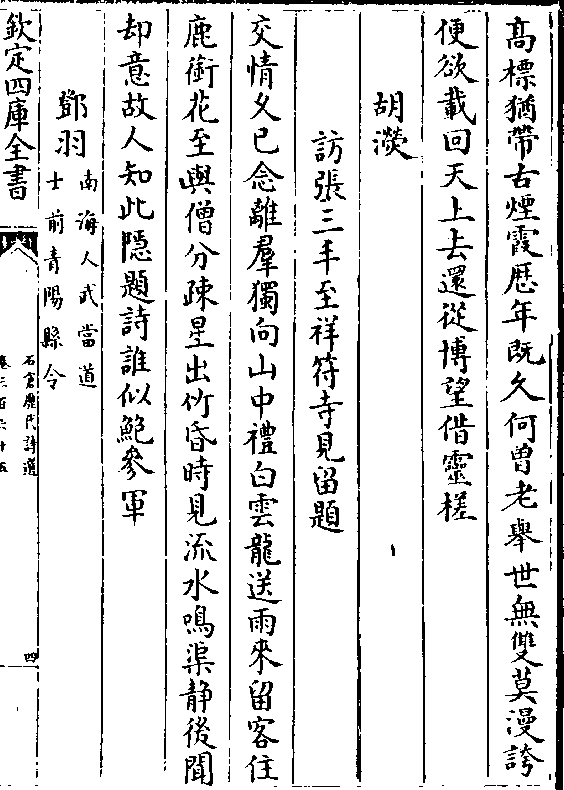 髙標猶帶古煙霞歴年既久何曽老舉世無雙莫漫誇
便欲載回天上去還從博望借靈槎
胡濙
訪張三丰至祥符寺見留題
交情久已念離羣獨向山中禮白雲龍送雨來留客住
鹿銜花至與僧分疎星出竹昏時見流水鳴渠静後聞
却意故人知此隠題詩誰似鮑參軍
鄧羽南海人武當道
士前青陽縣令
欽定四庫全書
石倉歴代詩選
卷三百六十五
四